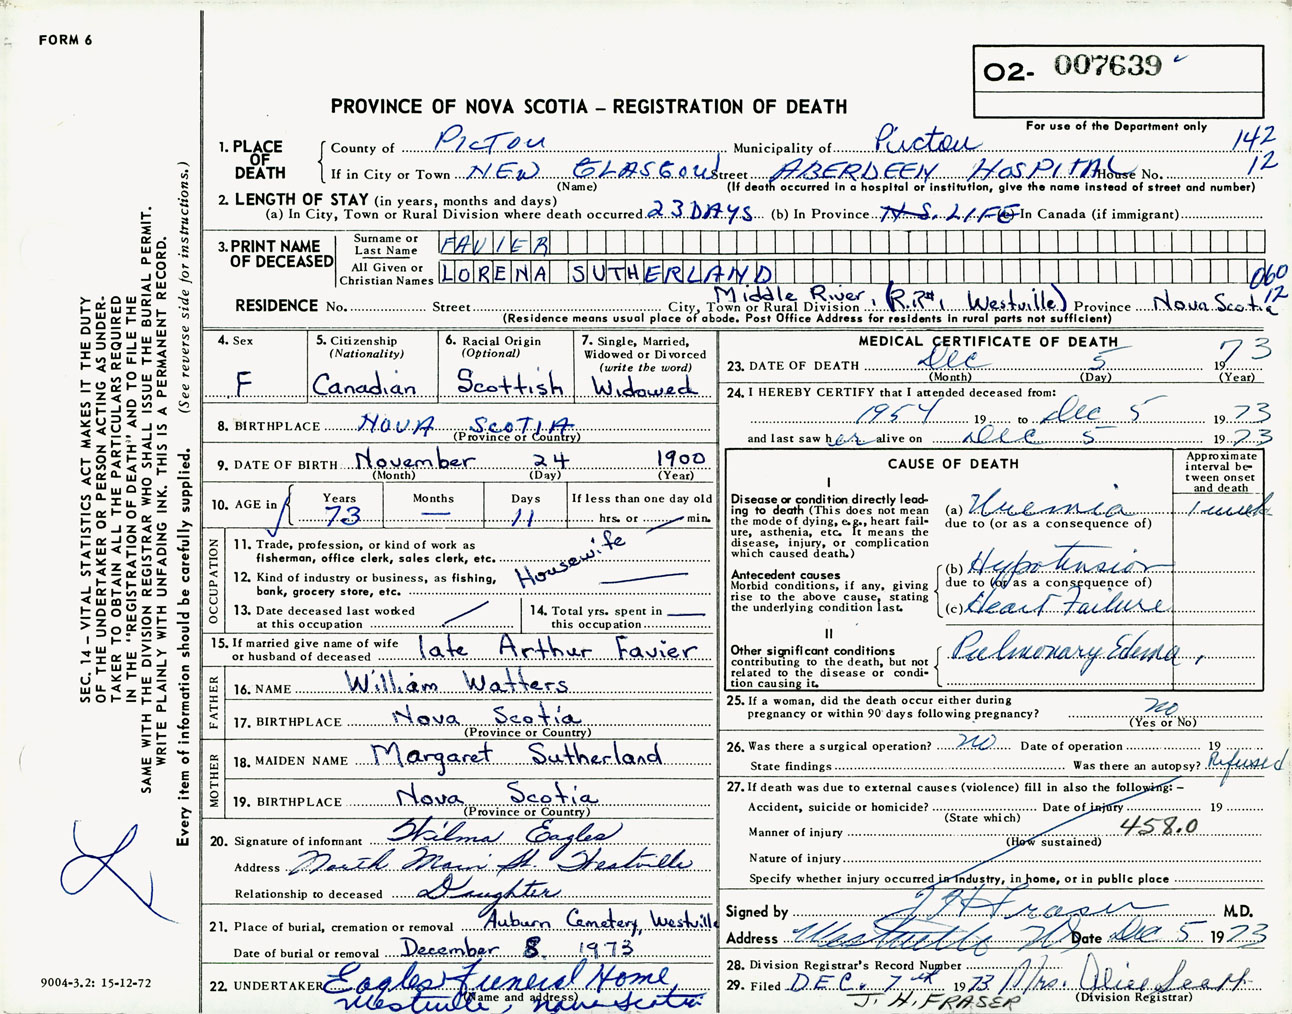 FORM 6
O2- 007639
PROVINCE OF NOVA SCOTIA – REGISTRATION OF DEATH
For use of the Department only
1. PLACE OF DEATH
County of Pictou Municipality of Pictou 142
If in City or Town NEW GLASGOW Street ABERDEEN HOSPITAL House No. 12
(Name) (If death occurred in a hospital or institution, give the name instead of street and number)
2. LENGTH OF STAY (in years, months and days)
(a) In City, Town or Rural Division where death occurred 23 DAYS (b) In Province N.S. LIFE (c) In Canada (if immigrant)
3. PRINT NAME OF DECEASED
Surname or Last Name FAVIER
All Given or Christian Names LORENA SUTHERLAND
060
12
RESIDENCE No. Street City, Town or Rural Division Middle River, (R.R#1 Westville) Province Nova Scotia
(Residence means usual place of abode. Post Office Address for residents in rural parts not sufficient)
4. Sex
F
5. Citizenship
(Nationality)
Canadian
6. Racial Origin
(Optional)
Scottish
7. Single, Married,
Widowed or Divorced
(write the word)
Widowed
8. BIRTHPLACE NOVA SCOTIA
(Province or Country)
9. DATE OF BIRTH November 24 1900
(Month) (Day) (Year)
10. AGE in Years 73 Months — Days 11 If less than one day old
hrs. or min.
OCCUPATION
11. Trade, profession, or kind of work as
fisherman, office clerk, sales clerk, etc. Housewife
12. Kind of industry or business, as fishing,
bank, grocery store, etc.
13. Date deceased last worked
at this occupation
14. Total yrs. spent in
this occupation
15. If married give name of wife
or husband of deceased late Arthur Favier
FATHER
16. NAME William Watters
17. BIRTHPLACE Nova Scotia
(Province or Country)
MOTHER
18. MAIDEN NAME Margaret Sutherland
19. BIRTHPLACE Nova Scotia
(Province or Country)
20. Signature of informant Wilma Eagles
Address North Main St. Westville
Relationship to deceased Daughter
21. Place of burial, cremation or removal Auburn Cemetery, Westville
Date of burial or removal December 8 1973
22. UNDERTAKER Eagles Funeral Home
(Name and address)
Westville, Nova Scotia
MEDICAL CERTIFICATE OF DEATH
23. DATE OF DEATH Dec 5 1973
(Month) (Day) (Year)
24. I HEREBY CERTIFY that I attended deceased from:
1954 19 to Dec 5 1973
and last saw her alive on Dec 5 1973
CAUSE OF DEATH
Approximate
interval be-
tween onset
and death
I
Disease or condition directly lead-
ing to death (This does not mean
the mode of dying, e.g., heart fail-
ure, asthenia, etc. It means the
disease, injury, or complication
which caused death.)
(a) Uremia 1 week
due to (or as a consequence of)
Antecedent causes
Morbid conditions, if any, giving
rise to the above cause, stating
the underlying condition last.
(b) Hypotension
due to (or as a consequence of)
(c) Heart Failure
II
Other significant conditions
contributing to the death, but not
related to the disease or condi-
tion causing it.
Pulmonary Edema,
25. If a woman, did the death occur either during
pregnancy or within 90 days following pregnancy? no
(Yes or No)
26. Was there a surgical operation? no Date of operation 19
State findings Was there an autopsy? Refused
27. If death was due to external causes (violence) fill in also the following: –
Accident, suicide or homicide? Date of injury 19
(State which)
Manner of injury 458.0
(How sustained)
Nature of injury
Specify whether injury occurred in industry, in home, or in public place
Signed by J H Fraser M.D.
Address Westville NS Date Dec 5 1973
28. Division Registrar's Record Number
29. Filed DEC. 7th 1973 Mrs. Alice Scott
(Division Registrar)
J. H. FRASER
SEC. 14 – VITAL STATISTICS ACT MAKES IT THE DUTY
OF THE UNDERTAKER OR PERSON ACTING AS UNDER-
TAKER TO OBTAIN ALL THE PARTICULARS REQUIRED
IN THE "REGISTRATION OF DEATH" AND TO FILE THE
SAME WITH THE DIVISION REGISTRAR WHO SHALL ISSUE THE BURIAL PERMIT.
WRITE PLAINLY WITH UNFADING INK. THIS IS A PERMANENT RECORD.
Every item of information should be carefully supplied. (See reverse side for instructions.)
9004-3.2: 15-12-72